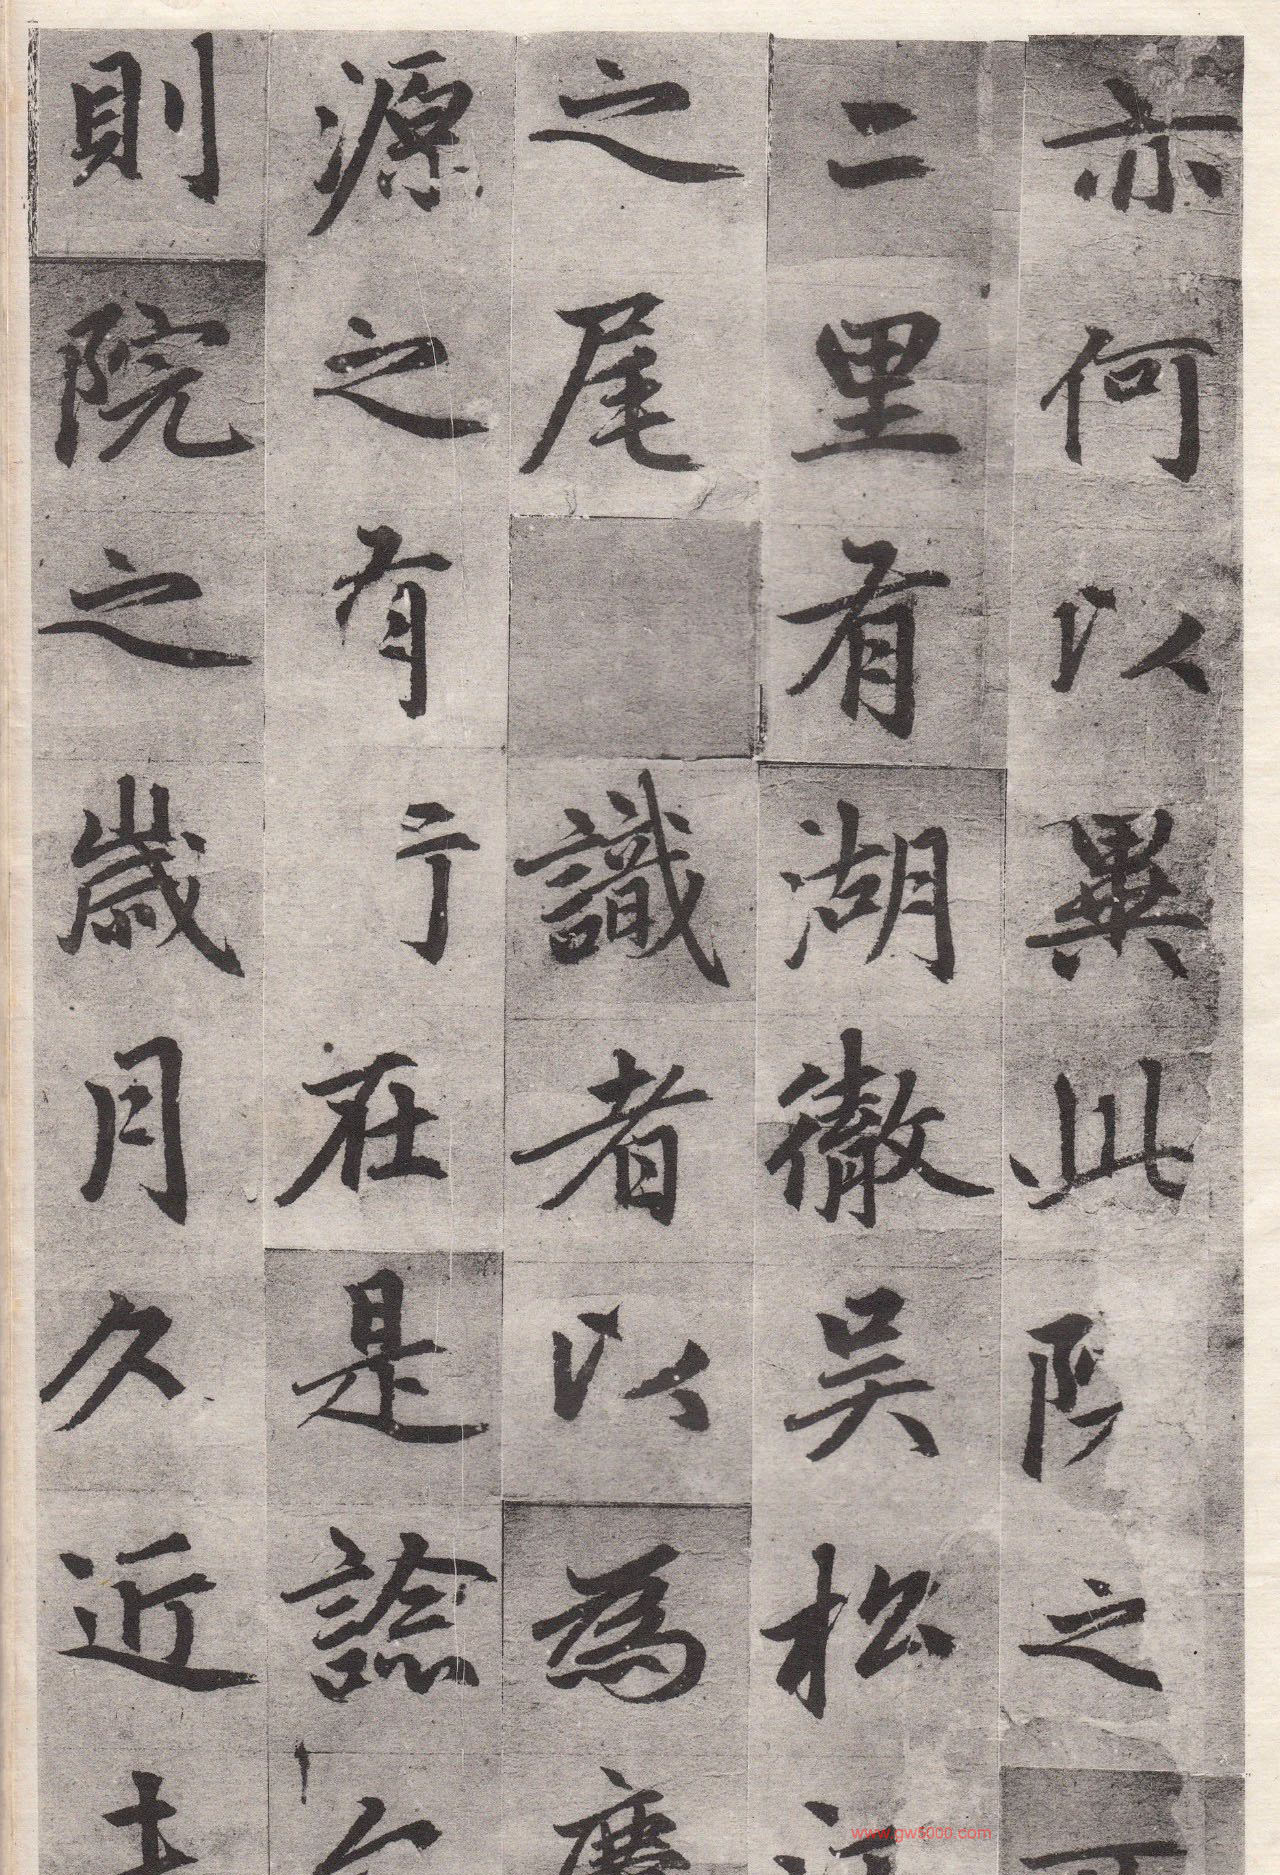 亦何以異此院之
二里有湖徹吳松江
之尾識者以為慶
源之有在是諗
則院之歲月久近
www.gw5000.com